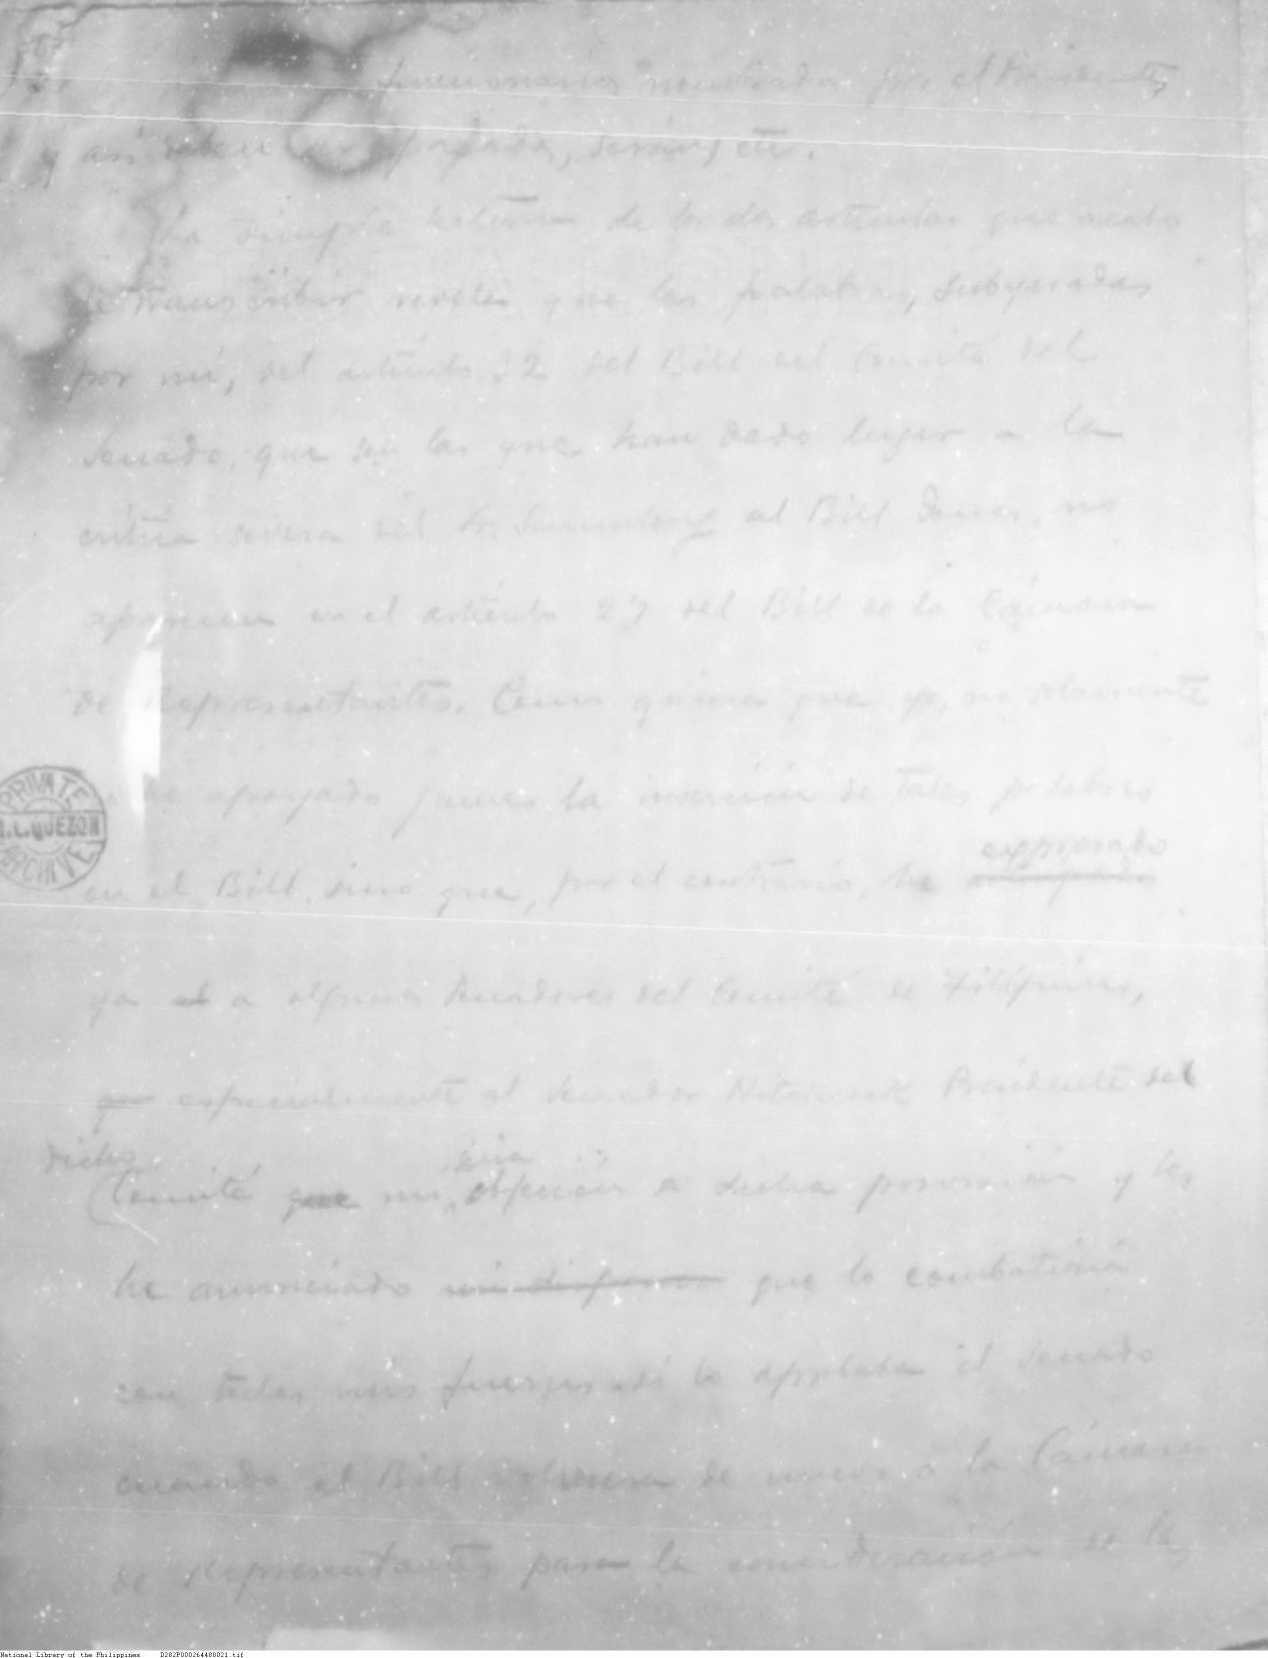 funcionarios nombrados por el Presidente,
y así
La simple lectura de los dos artículos que acabo
de transcribir revela que las palabras, subrayadas
por mí, del artículo 22 del Bill del Comité del
Senado, que son las que han dado lugar a la
crítica severa del Sr. al Bill Jones, no
aparecen en el artículo 27 del Bill de la Cámara
de Representantes. Como quiera que yo, no solamente
he apoyado jamás la inserción de tales palabras
expresado
en el Bill, sino que, por el contrario, he
ya a algunos Senadores del Comité de Filipinas,
especialmente al Senador Hitchcock Presidente del
dicho
Comité que mi objeción a dicha provisión y les
he anunciado que lo combatiría
con todas mis fuerzas si lo aprobaba el Senado
cuando el Bill de nuevo a la Cámara
de Representantes para la consideración de las
PRIVATE
M.L. QUEZON
ARCHIVE
National Library of the Philippines D282P000264480021.tif